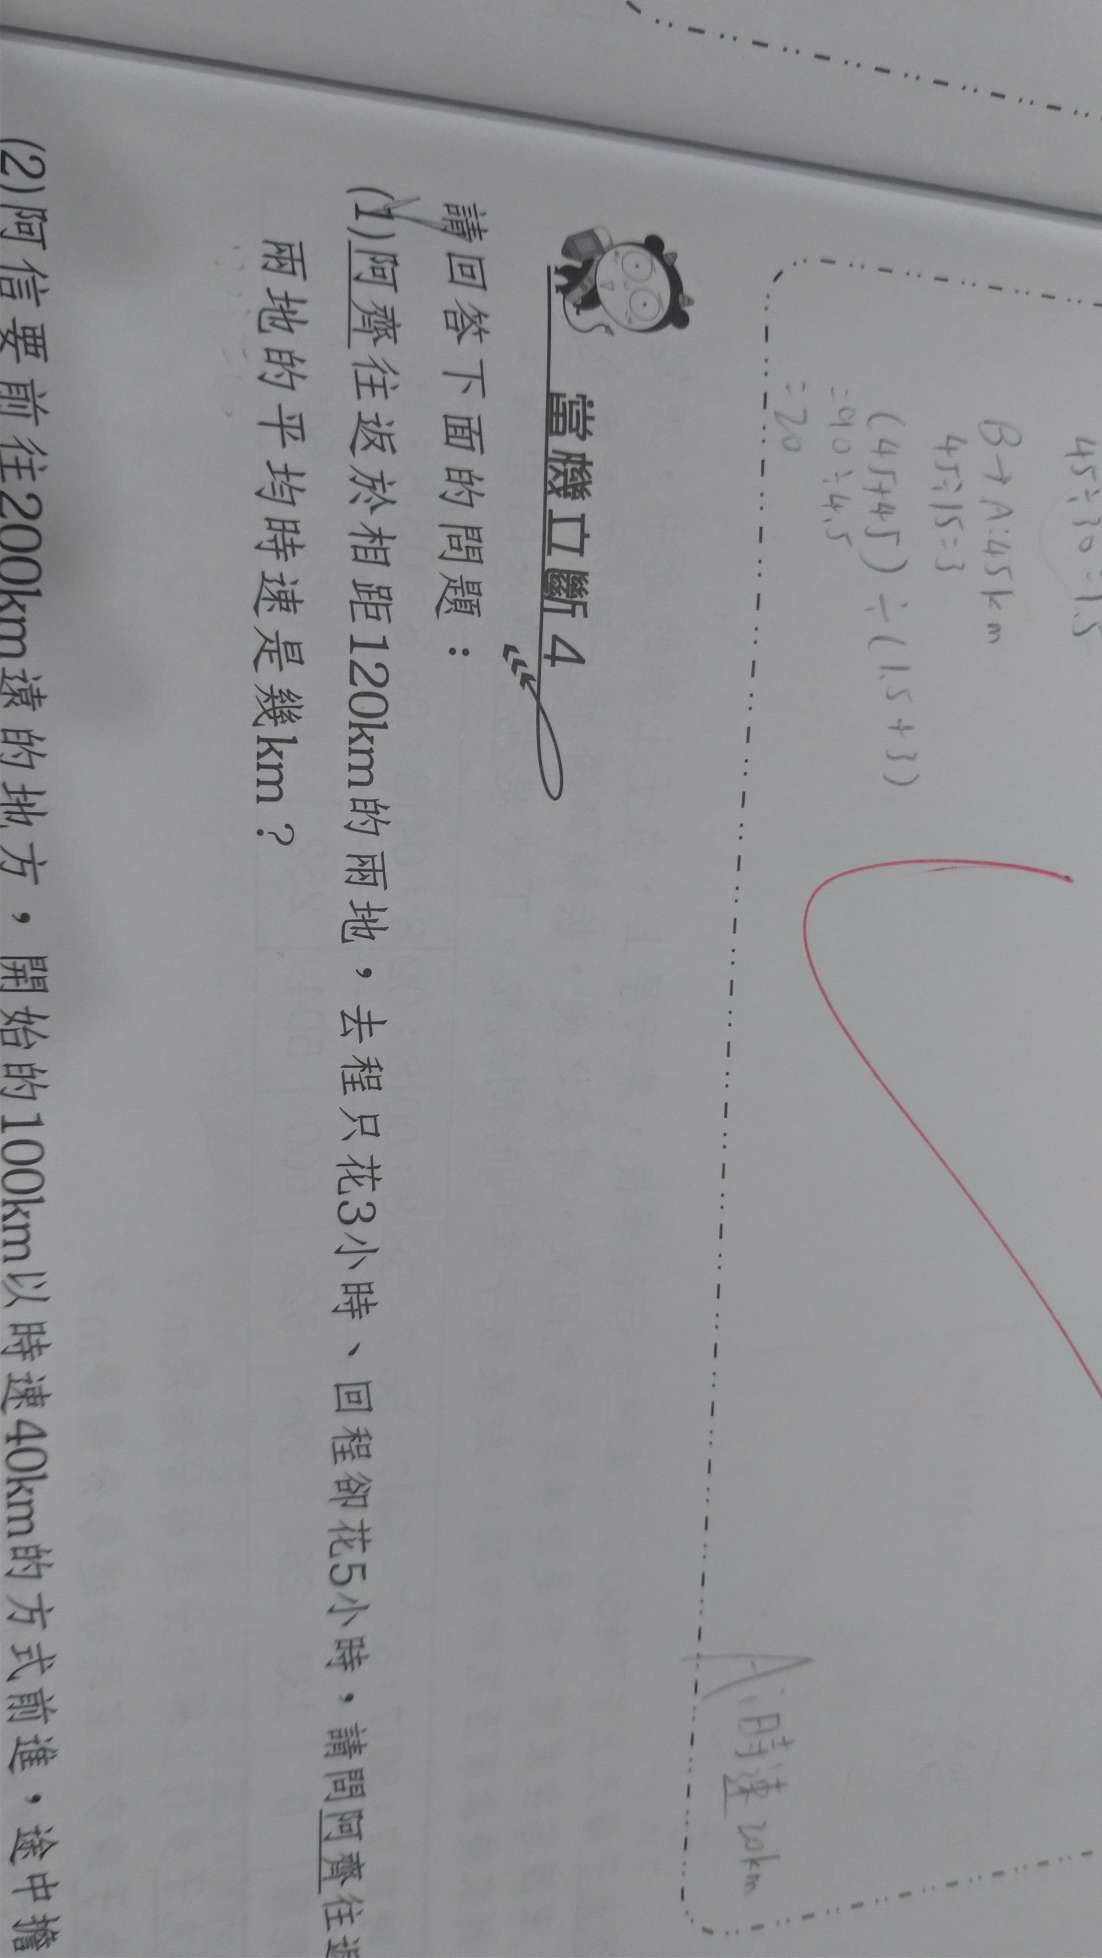 45÷30=1.5
B→A:45km
45÷15=3
(45+45)÷(1.5+3)
=90÷4.5
=20
A:時速20km
當機立斷4
請回答下面的問題：
(1)阿齊往返於相距120km的兩地，去程只花3小時、回程卻花5小時，請問阿齊往返
兩地的平均時速是幾km？
(2)阿信要前往200km遠的地方，開始的100km以時速40km的方式前進，途中擔